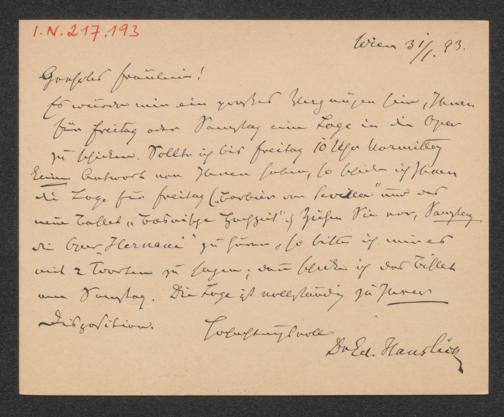 I.N. 217.193
Wien 31/1. 93.
Geehrtes Fräulein!
Es würde mir ein großes Vergnügen sein, Ihnen
für Freitag oder Samstag eine Loge in die Oper
zu schicken. Sollte ich bis Freitag 10 Uhr Vormittag
keine Antwort von Ihnen haben, so schicke ich Ihnen
die Loge für Freitag („Barbier von Sevilla" und das
neue Ballet „ Hochzeit".) Ziehen Sie vor, Samstag
die Oper „Hernani" zu hören, so bitte ich mir es
mit 2 Worten zu sagen; dann schicke ich das Billet
am Samstag. Die Loge ist vollständig zu Ihrer
Disposition.
Hochachtungsvoll
Dr Ed. Hanslick